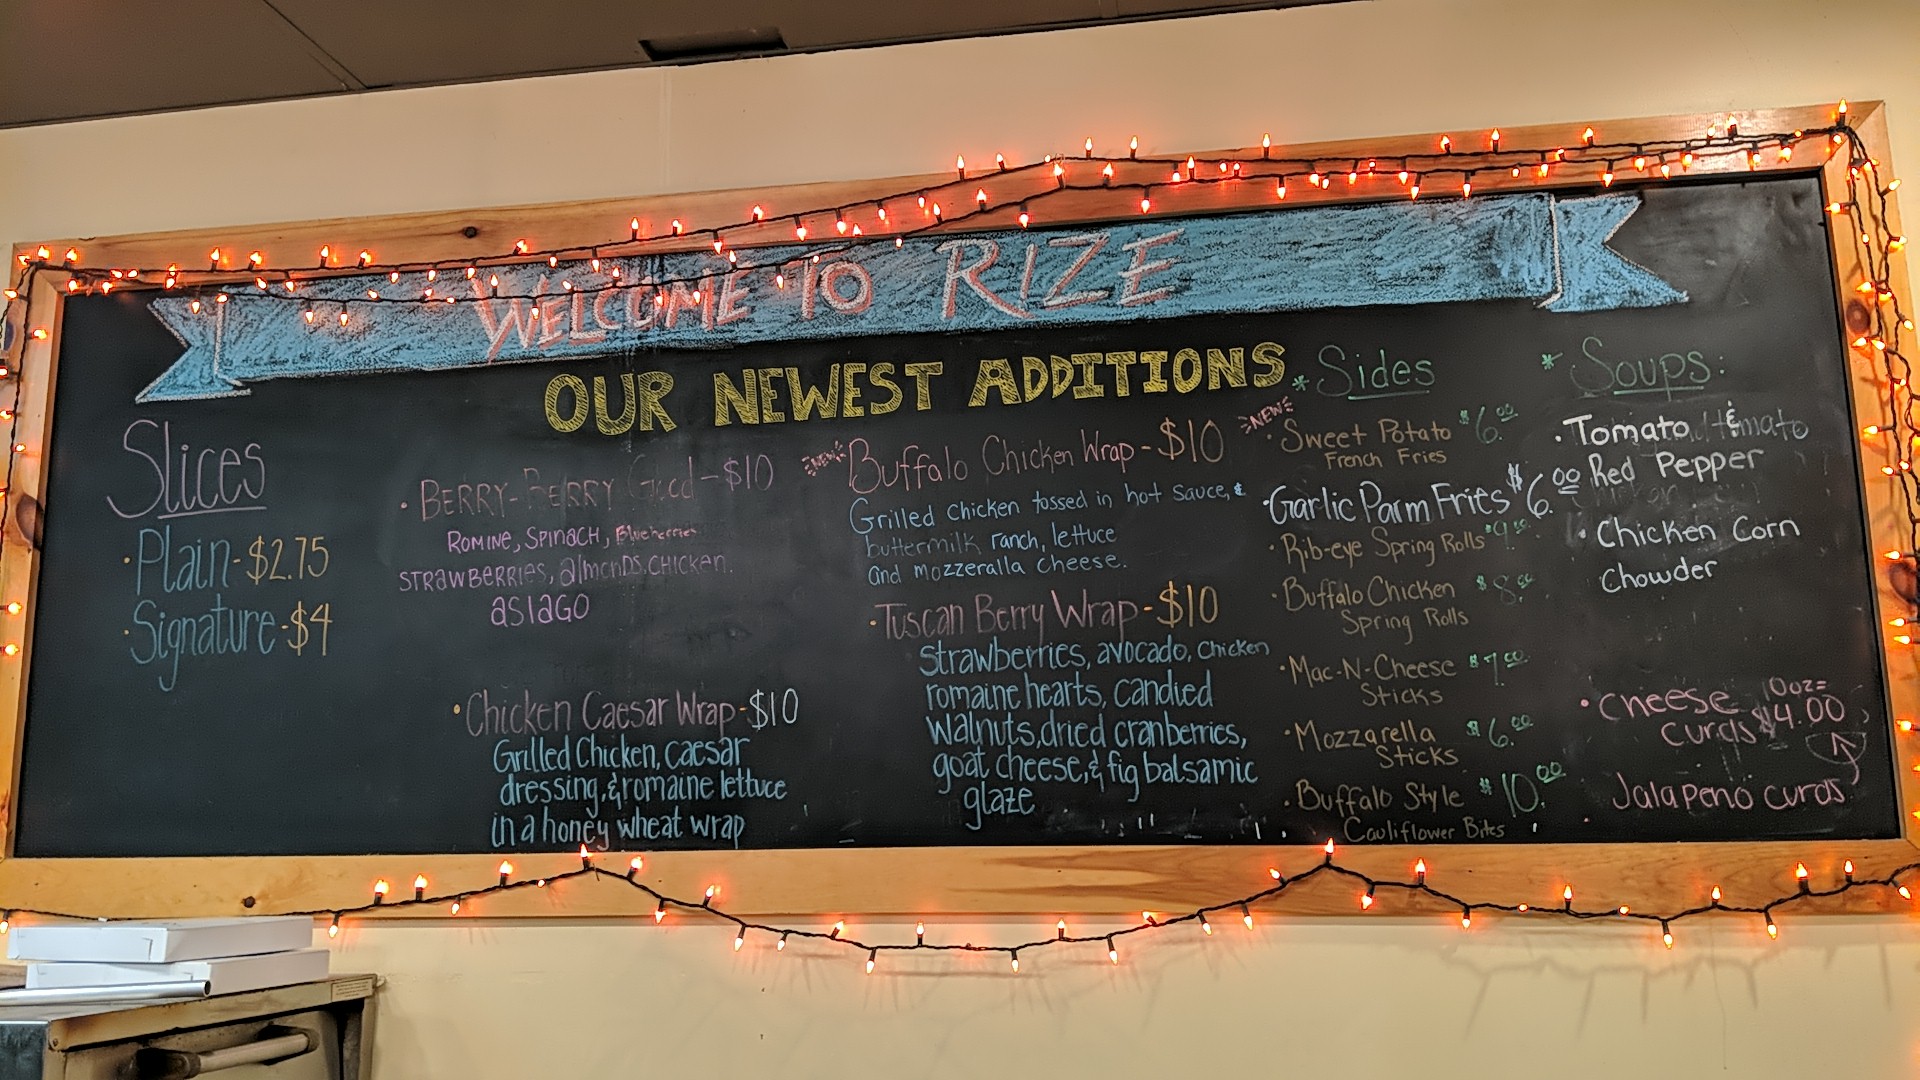 WELCOME TO RIZE
OUR NEWEST ADDITIONS
Slices
·Plain-$2.75
·Signature-$4
·BERRY-BERRY Good-$10
ROMINE, SPINACH, Blueberries
STRAWBERRIES, almonds, CHICKEN.
asiago
·Chicken Caesar Wrap-$10
Grilled Chicken, caesar
dressing, & romaine lettuce
in a honey wheat wrap
NEW
Buffalo Chicken Wrap-$10
Grilled chicken tossed in hot sauce, &
buttermilk ranch, lettuce
and mozzeralla cheese.
·Tuscan Berry Wrap-$10
Strawberries, avocado, chicken
romaine hearts, candied
walnuts, dried cranberries,
goat cheese, & fig balsamic
glaze
* Sides
NEW
·Sweet Potato $6.00
French Fries
·Garlic Parm Fries $6.00
·Rib-eye Spring Rolls $9.00
·Buffalo Chicken $8.00
Spring Rolls
·Mac-N-Cheese $7.00
Sticks
·Mozzarella $6.00
Sticks
·Buffalo Style $10.00
Cauliflower Bites
* Soups:
·Tomato &
Red Pepper
·Chicken Corn
Chowder
·Cheese
curds $4.00
Jalapeno curds